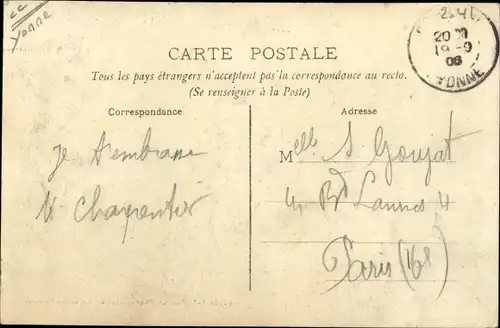 Yonne
CARTE POSTALE
Tous les pays étrangers n'acceptent pas la correspondance au recto.
(Se renseigner à la Poste)
20
19-9
06
YONNE
Correspondance
Adresse
Je t'embrasse
Charpentier
Melle S Goujat
Bd Lannes 4
Paris (16e)